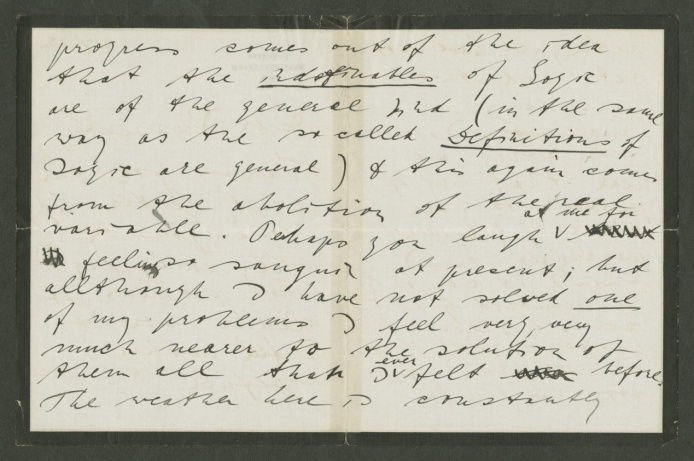 progress comes out of the idea
that the indefinables of Logic
are of the general kind (in the same
way as the so called Definitions of
Logic are general) & this again comes
from the abolition of the real
variable. Perhaps you laugh at me for
feeling so sanguin at present; but
allthough I have not solved one
of my problems I feel very, very
much nearer to the solution of
them all than I ever felt before.
The weather here is constantly